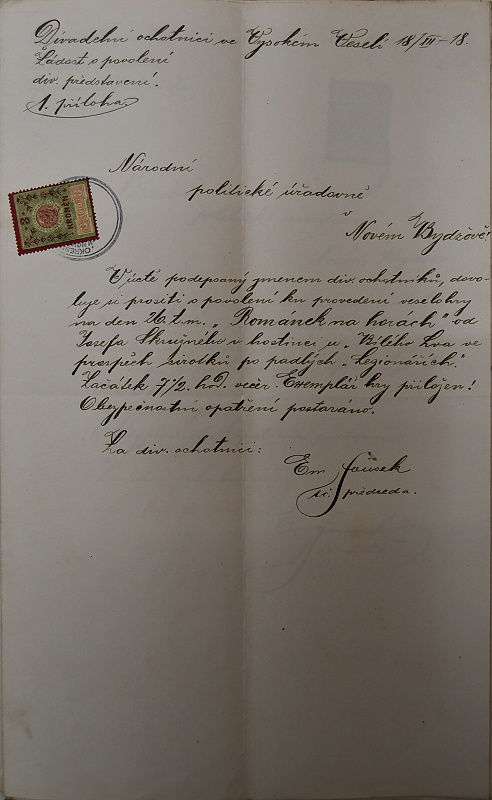 Divadelní ochotníci ve Vysokém Veselí 18/XII-18.
Žádost o povolení
div. představení.
1. příloha
Národní
politické úřadovně
v
Novém Bydžově!
V úctě podepsaný jmenem div. ochotníků, dovo-
luje si prositi o povolení ku provedení veselohry
na den 26. t. m. „Románek na horách" od
Josefa Skružného v hostinci u „Bílého Lva ve
prospěch sirotků po padlých „Legionářích".
Začátek 7 1/2 hod. večer. Exemplář hry přiložen!
Obezpečnostní opatření postaráno.
Za div. ochotníci:
Em
předseda.
3 KRONEN
OKRES